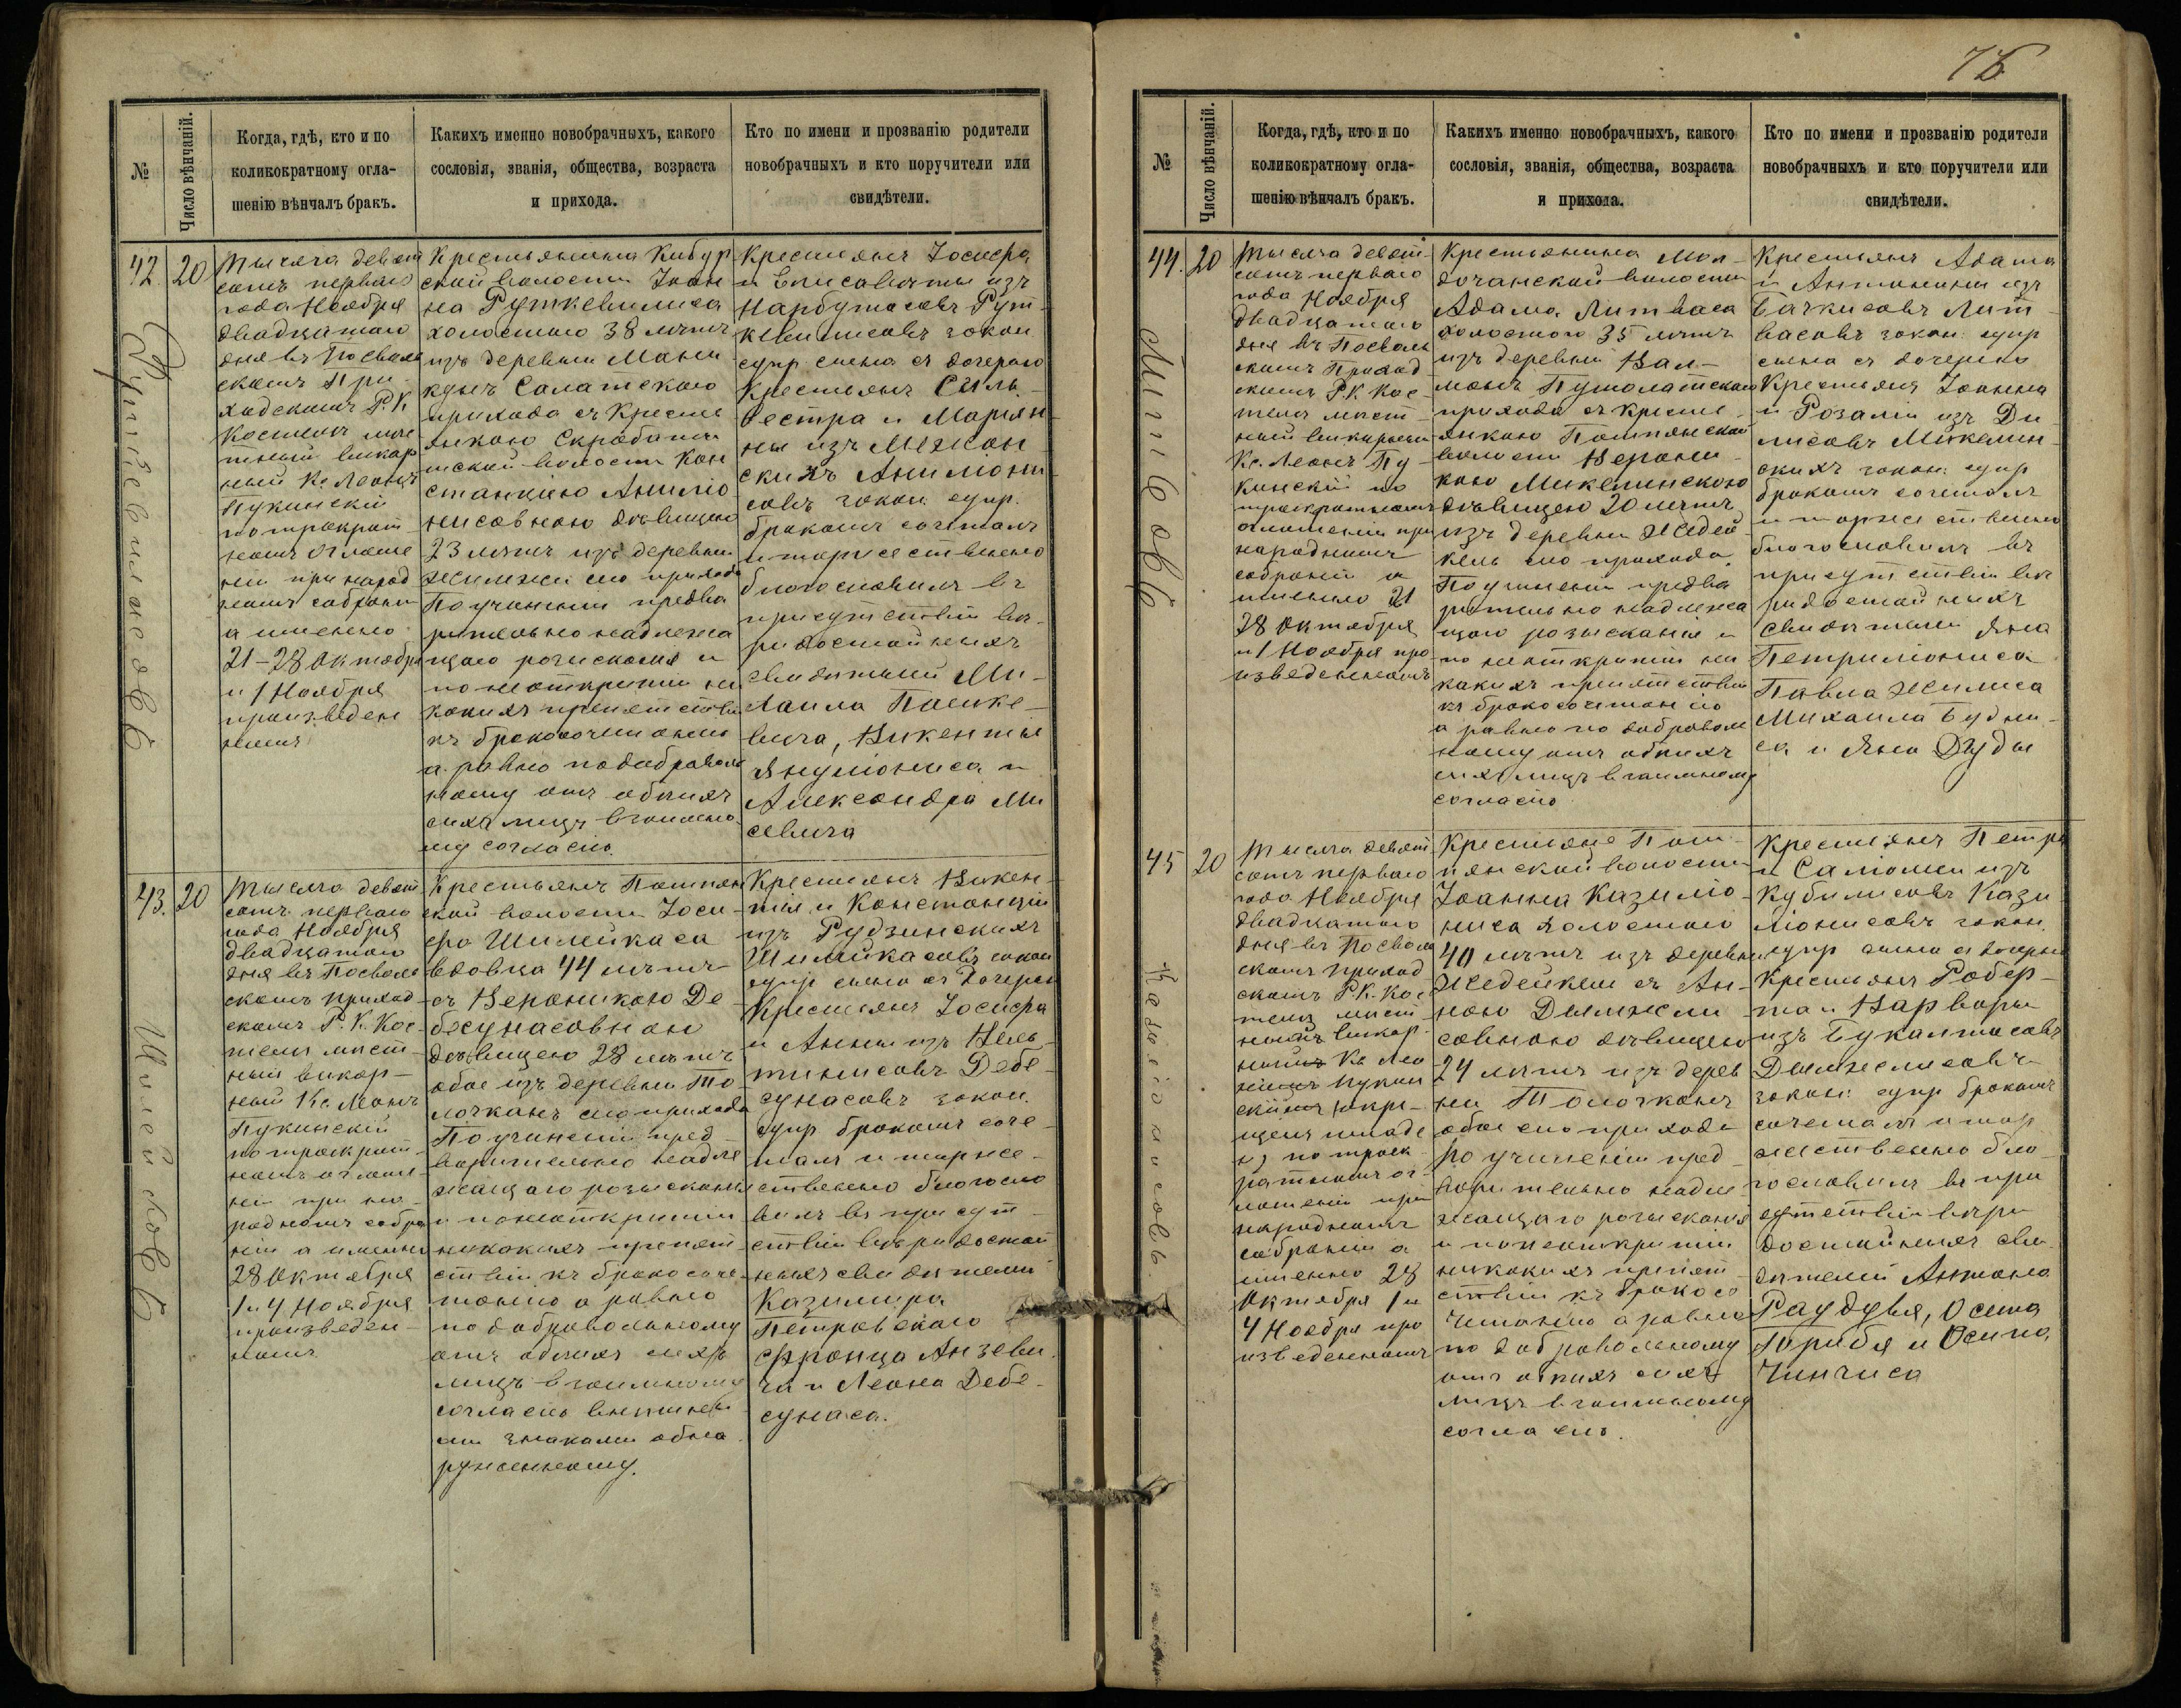 76
№
Число вѣнчаній.
Когда, гдѣ, кто и по
коликократному огла-
шенію вѣнчалъ бракъ.
Какихъ именно новобрачныхъ, какого
сословія, званія, общества, возраста
и прихода.
Кто по имени и прозванію родители
новобрачныхъ и кто поручители или
свидѣтели.
42.
20
Тысяча девят
сотъ перваго
года Ноября
двадцатаго
дня въ Посволь
скомъ При-
ходскомъ Р. К
Костелѣ мѣс
тный викар
ный Кс Леонъ
Пукинскій
по трократ
номъ оглаше
ніи при народ
номъ собраніи
а именно
21-28 Октября
и 1 Ноября
произведен
номъ
Крестьянина Кибур
ской волости Іоан
на Руткевилиса
холостаго 38 лѣтъ
изъ деревни Мани
кунъ Салатскаго
прихода съ Кресть
янкою Скробот
ской волости Кон
станціею Анилiо
нисовною дѣвицею
23 лѣтъ изъ деревни
сего прихода
По учиненіи предва
рительно надлежа
щаго розысканія и
по неоткрытіи ни
какихъ препятствій
къ бракосочетанію
а равно по доброволь
ному отъ обоихъ
сихъ лицъ взаимно
му согласію.
Крестьянъ Іосифа
и Елисаветы изъ
Нарбутасовъ Рут-
кевилисовъ закон
супр сына съ дочерью
Крестьянъ Силь-
вестра и Маріян
ны изъ Межан
скихъ Анилiони
совъ закон. супр.
бракомъ сочеталъ
и торжественно
благословилъ въ
присутствіи вѣ-
родостойныхъ
свидѣтелей Ми-
хаила Пашке-
вича, Викентія
Янулiониса и
Александра Ми
севича
43.
20
Тысяча девят
сотъ перваго
года Ноября
двадцатаго
дня въ Посволь
скомъ приход
скомъ Р. К. Кос-
телѣ мѣст-
ный викар-
ный Кс. Леонъ
Пукинскій
по троекрат-
номъ оглаше-
ніи при на-
родномъ собра
ніи а именно
28 Октября
1 и 4 Ноября
произведен-
номъ
Крестьянъ Помпян
ской волости Іоси-
фа Шилейкаса
вдовца 44 лѣтъ
съ Вероникою Де-
бесунасовною
дѣвицею 28 лѣтъ
обое изъ деревни То-
лочканъ сего прихода
По учиненіи пред-
варительно надле
жащаго розысканія
и по неоткрытіи
никакихъ препят-
ствій къ бракосоче-
танію а равно
по добровольному
отъ обоихъ сихъ
лицъ взаимному
согласію внѣшни
ми знаками обна
руженному.
Крестьянъ Викен-
тія и Констанціи
изъ Рудзинскихъ
Шилейкасовъ закон
супр сына съ дочерью
Крестьянъ Іосифа
и Анны изъ Нель-
тинисовъ Дебе-
сунасовъ закон.
супр бракомъ соче-
талъ и торже-
ственно благосло
вилъ въ присут-
ствіи вѣродостой
ныхъ свидѣтелей
Казимира
Петровскаго
Франца Анзеви
ча и Леона Дебе-
сунаса.
Шилейковъ
№
Число вѣнчаній.
Когда, гдѣ, кто и по
коликократному огла-
шенію вѣнчалъ бракъ.
Какихъ именно новобрачныхъ, какого
сословія, званія, общества, возраста
и прихода.
Кто по имени и прозванію родители
новобрачныхъ и кто поручители или
свидѣтели.
44.
20
Тысяча девят
сотъ перваго
года Ноября
двадцатаго
дня въ Посволь
скомъ Приход
скомъ Р. К. Кос-
телѣ мѣст-
ный викарный
Кс. Леонъ Пу-
кинскій по
троекратномъ
оглашеніи при
народномъ
собраніи а
именно 21
28 Октября
и 1 Ноября про
изведенномъ
Крестьянина Мол-
дочанской волости
Адама Литваса
холостого 35 лѣтъ
изъ деревни Вал-
монъ Пушолатскаго
прихода съ кресть-
янкою Помпянской
волости Верони-
кою Микелинскою
дѣвицею 20 лѣтъ
изъ деревни Жедей
кель сего прихода.
По учиненіи предва
рительно надлежа
щаго розысканія и
по неоткрытіи ни
какихъ препятствій
къ бракосочетанію
а равно по доброволь
ному отъ обоихъ
сихъ лицъ взаимному
согласію
Крестьянъ Адама
и Антонины изъ
Бачкисовъ Лит-
васовъ закон. супр
сына съ дочерью
Крестьянъ Іоанна
и Розаліи изъ Ди
лисовъ Микелин-
скихъ закон. супр
бракомъ сочеталъ
и торжественно
благословилъ въ
присутствіи вѣ
родостойныхъ
свидѣтелей Яна
Петрилiониса
Павла Жилиса
Михаила Будни-
са и Яна Дуды
45
20
Тысяча девят
сотъ перваго
года Ноября
двадцатаго
дня въ Посволь
скомъ приход
скомъ Р. К. Кос
телѣ мѣст
номъ викар-
нымъ Кс Лео
номъ Пукин
скимъ

по троек
ратномъ ог-
лашеніи при
народномъ
собраніи а
именно 28
Октября 1 и
4 Ноября про
изведенномъ
Крестьяне Пом-
пянской волости
Іоанна Казилiо-
ниса холостого
40 лѣтъ изъ деревни
Жедейкели съ Ан-
ною Дымжели
совною дѣвицею
24 лѣтъ изъ дерев
ни Толочканъ
обое сего прихода
По учиненіи пред-
варительно надле-
жащаго розысканія
и по неоткрытіи
никакихъ препят-
ствій къ бракосо
четанію а равно
по добровольному
отъ обоихъ сихъ
лицъ взаимному
согласію.
Крестьянъ Петра
и Саломеи изъ
Кубилисовъ Кази
лiонисовъ закон.
супр сына съ дочерью
Крестьянъ Робер-
та и Варвары
изъ Букантасовъ
Дымжелисовъ
закон. супр бракомъ
сочеталъ и тор
жественно бла-
гословилъ въ при
сутствіи вѣро
достойныхъ сви
дѣтелей Антона
Раудувя, Осипа
Грибя и Осипа
Чинчиса